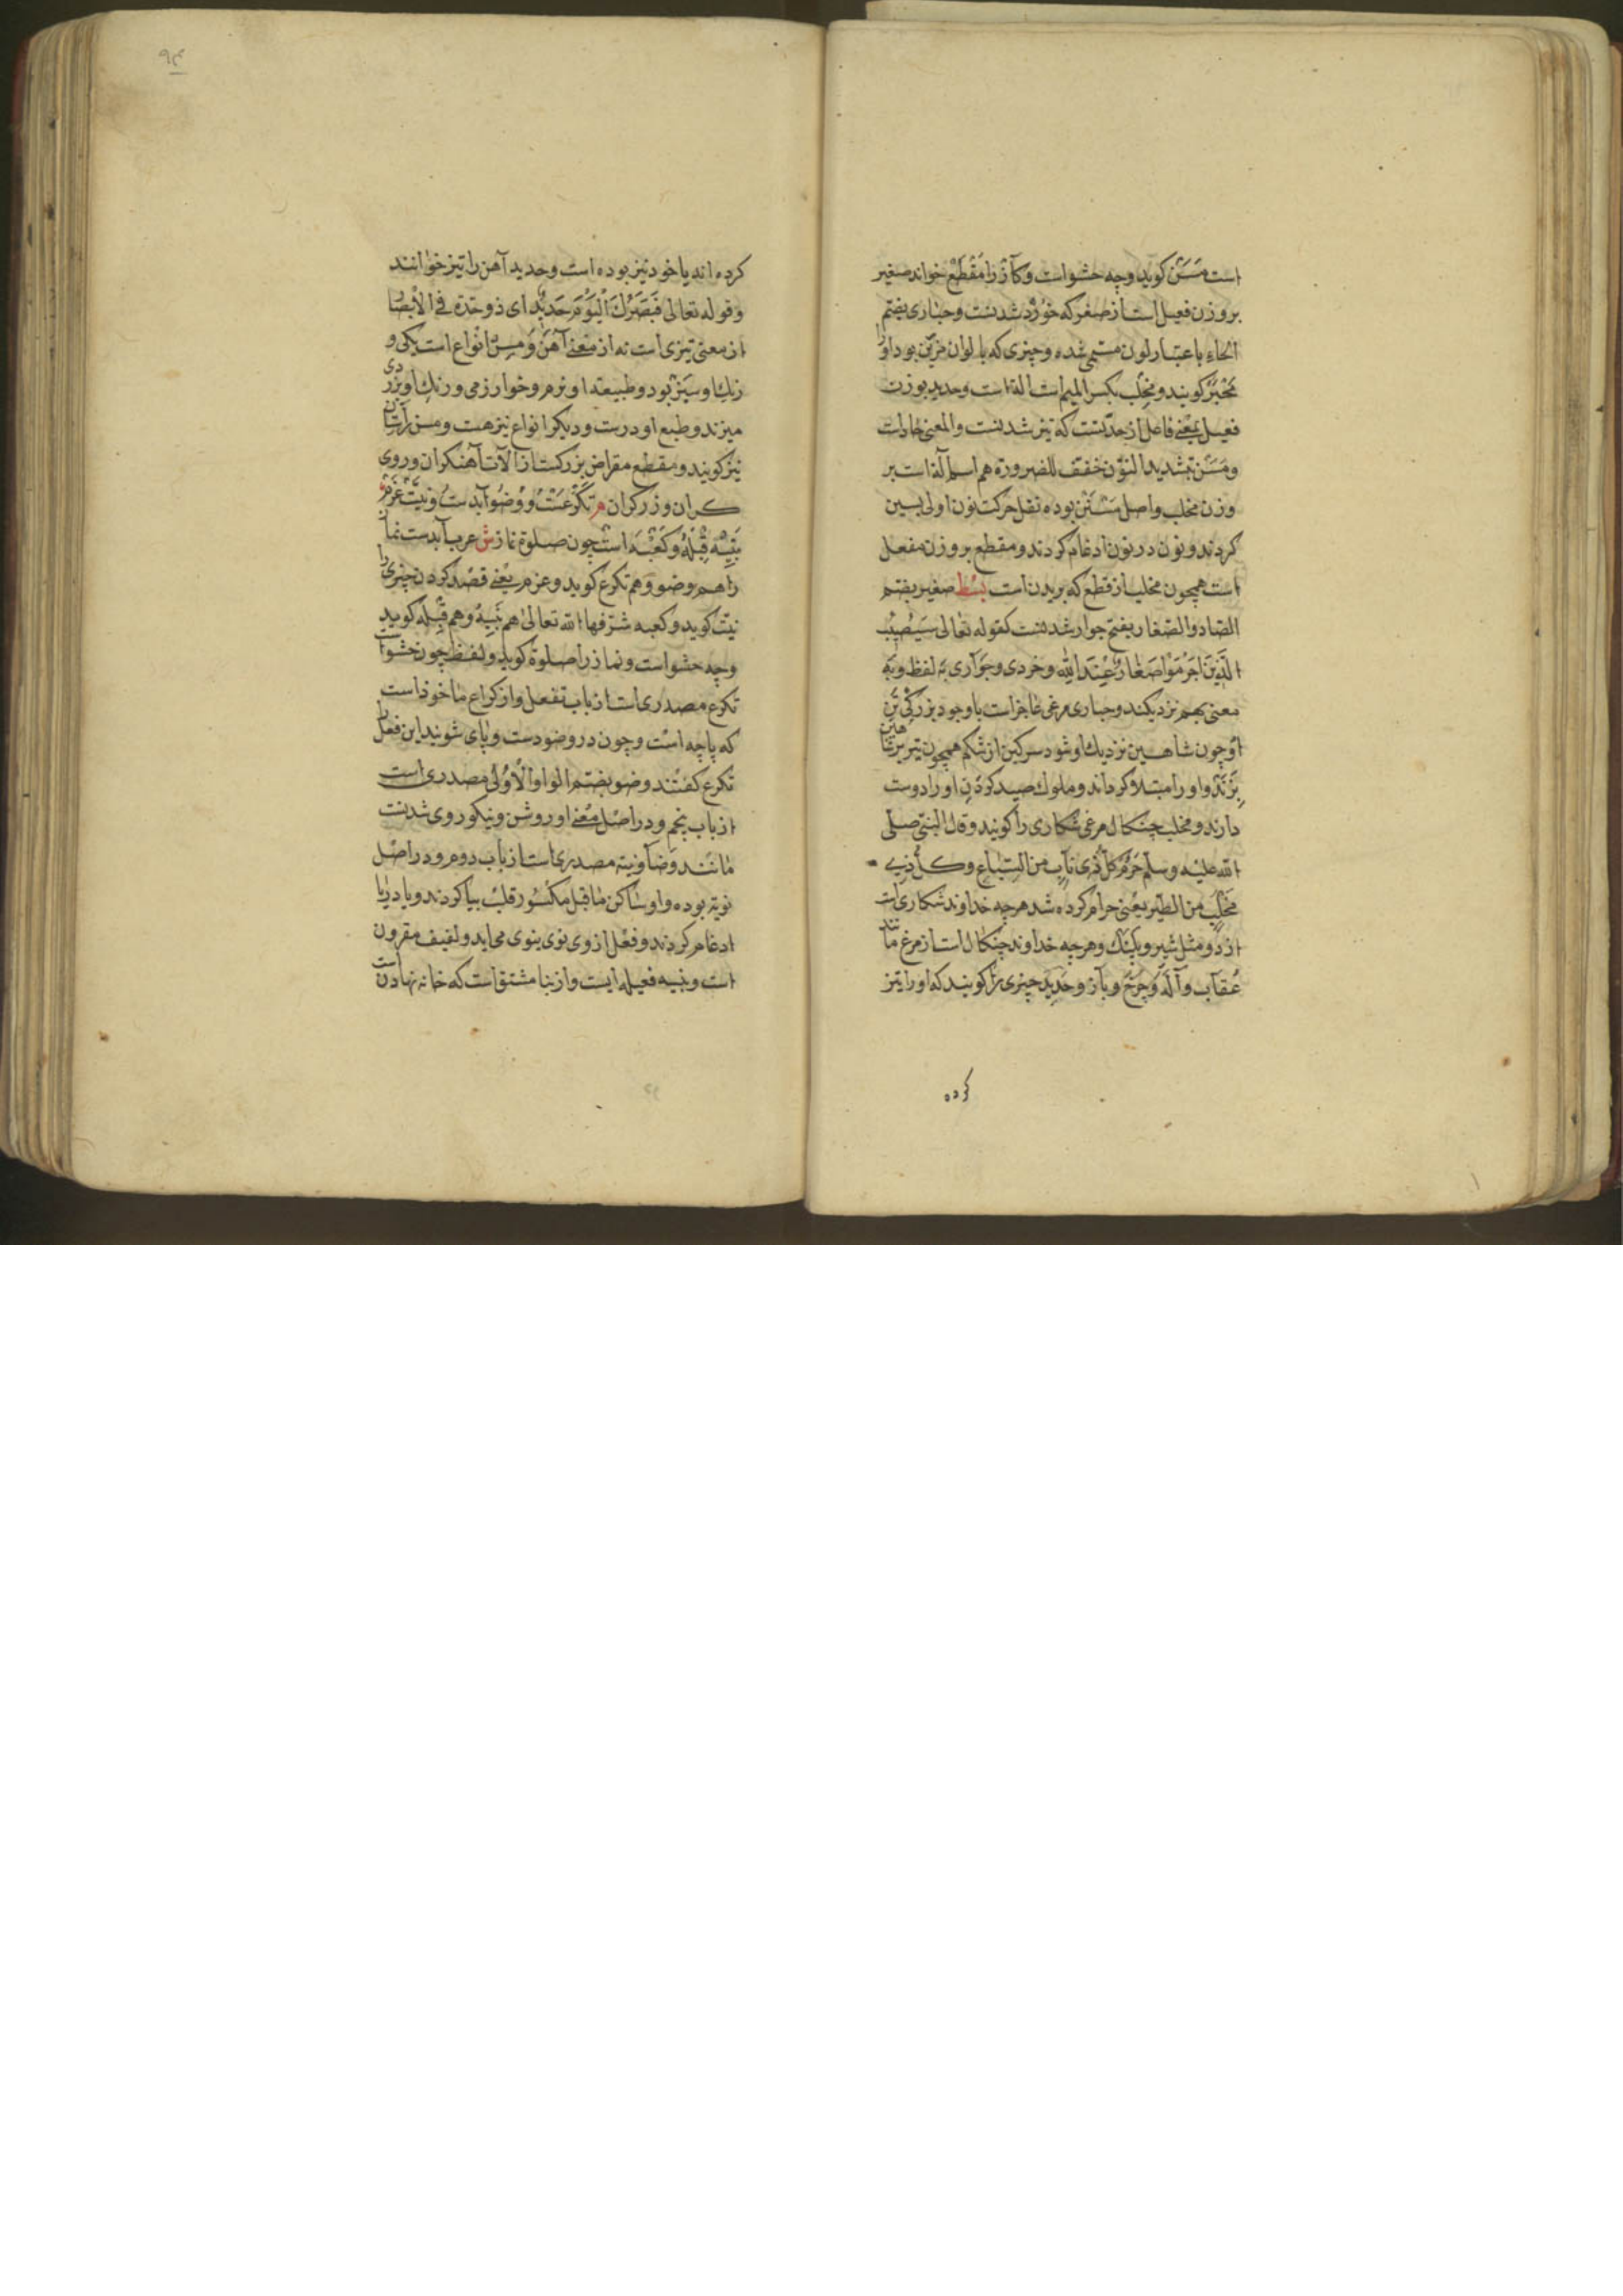 است مَسَنّ کوید وجه حشو است وکآزْ را مَقْطَعْ خواند صغیر
بروزن فعیل است از صغر که خوُرْد شدنست وحبٰاری بضتم
الحاءِ باعتبار لون مستمی شده وچیزی که بالوان مزیّن بود اورا
محَبّر کویند ومِخْلب بکسر المیم است الة است وحدید بوزن
فعیل بمعْنے فاعل از حدّتست که تیز شدنست والمعنی حاد است
ومَسَنّ تبشدید النوّن خفّف للضرورة هم اسم آلة است بر
وزن مخلب واصل مَسْنَنْ بوده نقل حرکت نون اولی بسین
کردند ونون در نون ادغام کردند ومقطع بروزن مفعل
است همچون مخلب از قطع که بریدن است بسْط صغیر بضتم
الصّاد والصّغار بفتح خوار شدنست کقوله تعٰالی سَیُصیُٖب
الَّذِینَ اَجْرَمُوْا صَغٰارٌ عِنْدَ اللّٰهِ وخردی وخوٰاری به لفظ وبه
معنی بهم نزدیکند وحباری مرغی عٰاجز است باوجود بزرکُی تن
اوُ چون شاهین نزدیك او شود سرکین از شکم همچون تیر بر شاهین
بِزَنَدْ واورا مبتلا کرداند وملوك صید کردَنِ اورا دوست
دارند ومخلب چنکال مرغی شکاری را کویند وقال النبیّ صلّی
اللّٰه علیْه وسلّم حَرُمَ کلّ ذٖی نآبٍ من السّبٰاع وکلُّ ذٖے
مَخْلَبٍ من الطّیر یعْنی حرام کرده شد هرچه خداوند شکاری است
از دَد ومثل شیر وپلنك وهرچه خداوند چنکال است از مرغ مانند
عُقآب وآلُهْ وَچَرَخْ وبآز وحدید چیزی رٰا کویند که اورا تیز
کرده
۹۴
کرده اند یا خود تیز بوده است وحدید آهن را تیز خوٰانند
وقوله تعالی فَبَصَرُكَ اَلْیَوْمَ حَدیٖدٌ ای ذو حدّة فے الأبْصٰار
از معنی تیزی است نه از معْنے آهَنْ وَمِسّ انوْاع است یکی
رنك او سَبْز بود وطبیعة او نرم وخوارزمی ورنك او بزردی
میزند وطبع او درست ودیکر انواع نیز هست ومسن را
نیز کویند ومقطع مقراض بزرکست از آلات آهنکران وروی
کران وزرکران م تکَرُّعَسْت ووُضُوآبدست ونیَّتْ عَزْم
بَنِیّه قِبْلَهٔ وکَعْبَه است چون صلوة نماز ش عرب آبدست نماز
را هم وضو وهم تکرع کوید وعزم یعْنے قصْد کردن چیزی را
نیّت کوید وکعبه شرّفها اللّٰه تعالیٰ هم بَنِیّه وهم قِبْلَه کوید
وچه حشو است ونماز را صلوة کوید ولفظ چون حشو است
تکرع مصدری است از باب تفعل واز کراع مٰاخوذ است
که پاچه است وچون در وضو دست وپٰای شویند این فعل را
تکرع کفتند وضو بضتم الواو الأولی مصدری است
از باب پنجم ودر اصل معْنے او روشن ونیکو روی شدنست
مانند وضآ ونیّة مصدری است از باب دوم ودر اصْل
نویة بوده واو ساکن ماقبل مکسُور قلب بیا کردند ویا در یا
ادغام کردند وفعْل از وی نوی ینوی می اید ولفیف مقرون
است وبنیه فعیله ایست واز بنا مشتق است که خانه نهادن است